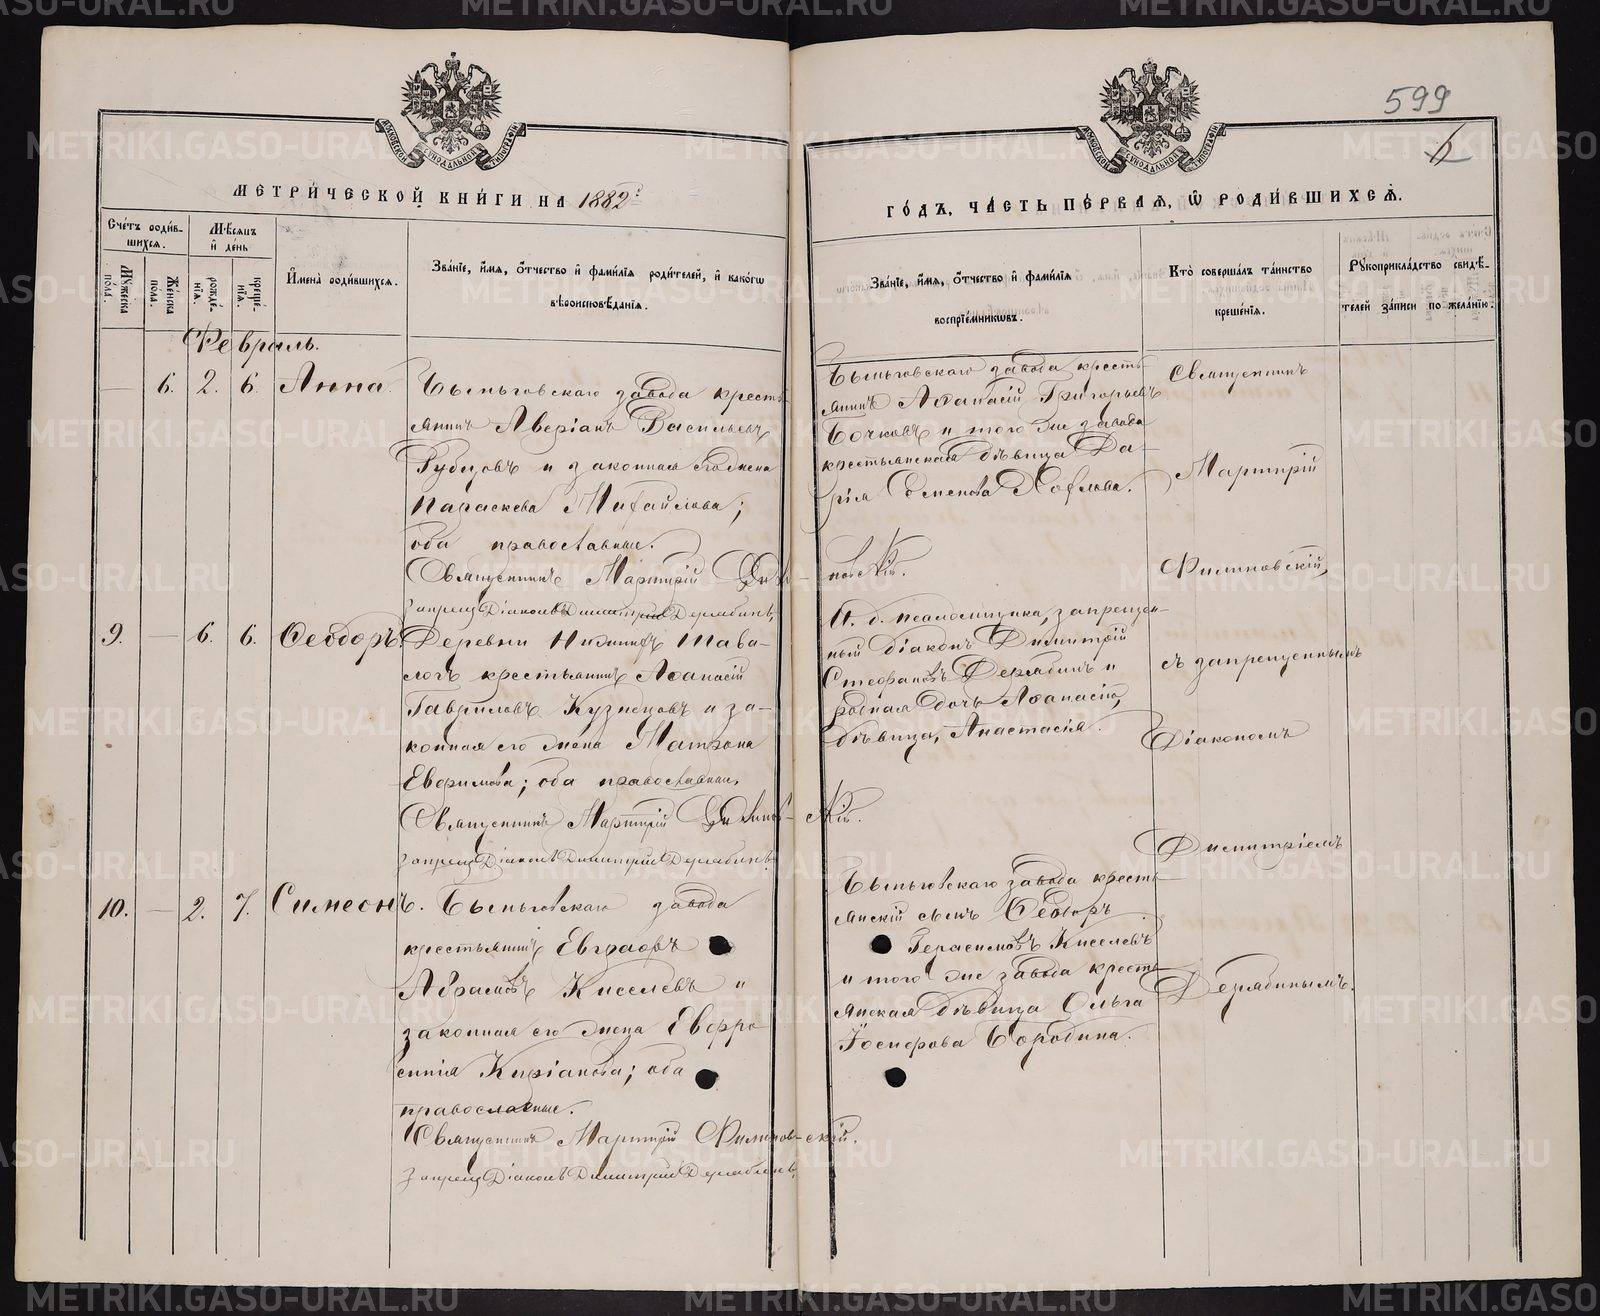 599
6
МОСКОВСКОЙ СѴНОДАЛЬНОЙ ТИПОГРАФІИ
МОСКОВСКОЙ СѴНОДАЛЬНОЙ ТИПОГРАФІИ
МЕТРИ́ЧЕСКОЙ КНИ́ГИ НА 1882й
ГО́ДЪ, ЧА́СТЬ ПЕ́РВАЯ, Ѿ РОДИ́ВШИХСЯ.
Сче́тъ роди́в-
шихся.
Мѣ́сяцъ
и҆ де́нь
Му́жеска по́ла.
Же́нска по́ла.
рожде́-
нїя.
креще́-
нїя.
И҆мена̀ роди́вшихся.
Зва́нїе, и҆́мя, ѻ҆́тчество и҆ фами́лїя роди́телей, и҆ како́гѡ
вѣроисповѣ́данїя.
Зва́нїе, и҆́мя, ѻ҆́тчество и҆ фами́лїя
воспрїе́мникѡвъ.
Кто̀ соверша́лъ та́инство
креще́нїя.
Рꙋкоприкла́дство свидѣ́-
телей за́писи по жела́нїю.
Февраль.
— 6. 2. 6. Анна.
Быньговскаго завода кресть-
янинъ Аверіанъ Васильевъ
Рубцовъ и законная его жена
Параскева Михайлова;
оба православные.
Священникъ Мартирій Филиповскій.
запрещ. Діаконъ Димитрій Дерябинъ
Быньговскаго завода кресть-
янинъ Аѳанасій Григорьевъ
Бочковъ и того же завода
крестьянская дѣвица Да-
рія Семенова
Священникъ
Мартирій
Филиповскій,
съ запрещеннымъ
Діакономъ
Димитріемъ
Дерябинымъ.
9. — 6. 6. Ѳеодоръ.
Деревни Нижнихъ Тава-
логъ крестьянинъ Аѳанасій
Гавриловъ Кузнецовъ и за-
конная его жена Матрона
Евфимова; оба православные.
Священникъ Мартирій Филиповскій.
запрещ. Діаконъ Димитрій Дерябинъ
И. д. псаломщика, запрещен-
ный діаконъ Димитрій
Стефановъ Дерябинъ и
родная дочь Аѳанасія,
дѣвица, Анастасія.
10. — 2. 7. Симеонъ.
Быньговскаго завода
крестьянинъ Евграфъ
Абрамовъ Киселевъ и
законная его жена Евфро-
синія Киріанова; оба
православные.
Священникъ Мартирій Филиповскій.
запрещ. Діаконъ Димитрій Дерябинъ
Быньговскаго завода кресть-
янскій сынъ Ѳеодоръ
Герасимовъ Киселевъ
и того же завода кресть-
янская дѣвица Ольга
Іосифова Бородина.
METRIKI.GASO-URAL.RU